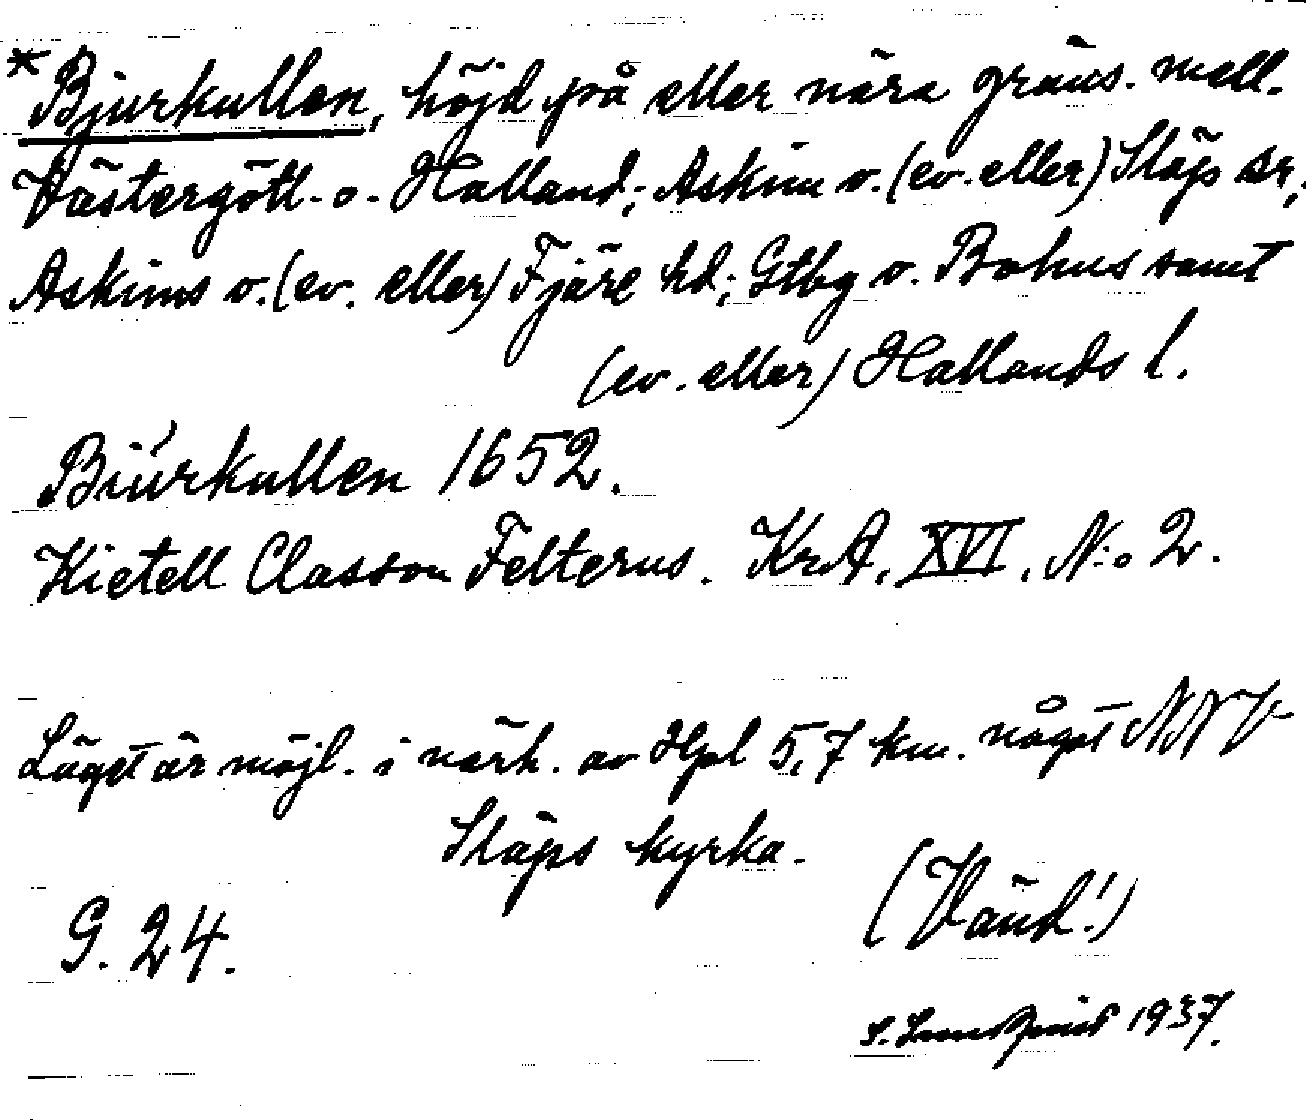 *Bjurkullen, höjd på eller nära gräns. mell.
Västergötl. o. Halland; Askim o. (ev. eller) Släp sr,
Askims o. (ev. eller) Fjäre hd; Gtbg o. Bohus samt
(ev. eller) Hallands l.
Biúrkullen 1652.
Kietell Classon Felterus. KrA, XVI, N:o 2.
Läget är möjl. i närh. av Hpl 5,7 km. något NNV
Släps kyrka.
(Vänd!)
G. 24.
1937.